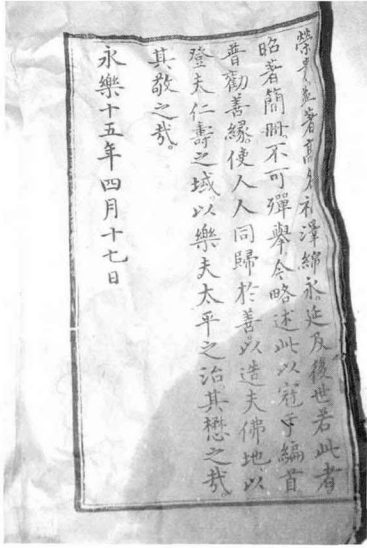 榮昇並著高名福澤綿永延及後世若此者
昭著簡冊不可殫舉今略述此以冠于編首
普勸善緣使人人同歸於善以造夫佛地以
登夫仁壽之域以樂夫太平之治其懋之哉
其敬之哉
永樂十五年四月十七日